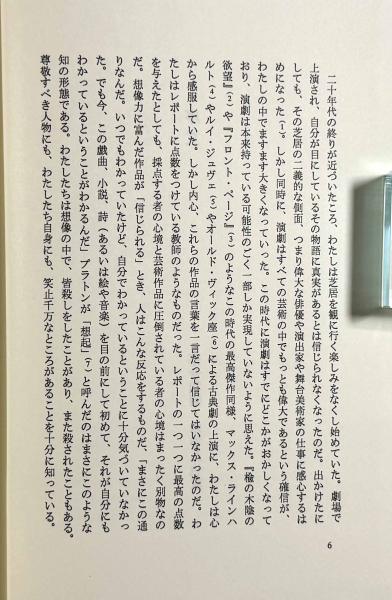 二十年代の終りが近づいたころ、わたしは芝居を観に行く楽しみをなくし始めていた。劇場で
上演され、自分が目にしているその物語に真実があるとは信じられなくなったのだ。出かけたに
しても、その芝居の二義的な側面、つまり偉大な俳優や演出家や舞台美術家の仕事に感心するは
めになった(1)。しかし同時に、演劇はすべての芸術の中でもっとも偉大であるという確信が、
わたしの中でますます大きくなっていった。この時代に演劇はすでにどこかがおかしくなって
おり、演劇は本来持っている可能性のごく一部しか実現していないように思えた。『楡の木陰の
欲望』(2)や『フロント・ページ』(3)のようなこの時代の最高傑作同様、マックス・ラインハ
ルト(4)やルイ・ジュヴェ(5)やオールド・ヴィック座(6)による古典劇の上演に、わたしは心
から感服していた。しかし内心、これらの作品の言葉を一言だって信じてはいなかったのだ。わ
たしはレポートに点数をつけている教師のようなものだった。レポートの一つ一つに最高の点数
を与えたとしても、採点する者の心境と芸術作品に圧倒されている者の心境はまったく別物なの
だ。想像力に富んだ作品が「信じられる」とき、人はこんな反応をするものだ。「まさにこの通
りなんだ。いつでもわかっていたけど、自分でわかっているということに十分気づいていなかっ
た。でも今、この戯曲、小説、詩(あるいは絵や音楽)を目の前にして初めて、それが自分にも
わかっているということがわかるんだ」プラトンが「想起」(7)と呼んだのはまさにこのような
知の形態である。わたしたちは想像の中で、皆殺しをしたことがあり、また殺されたこともある。
尊敬すべき人物にも、わたしたち自身にも、笑止千万なところがあることを十分に知っている。
6